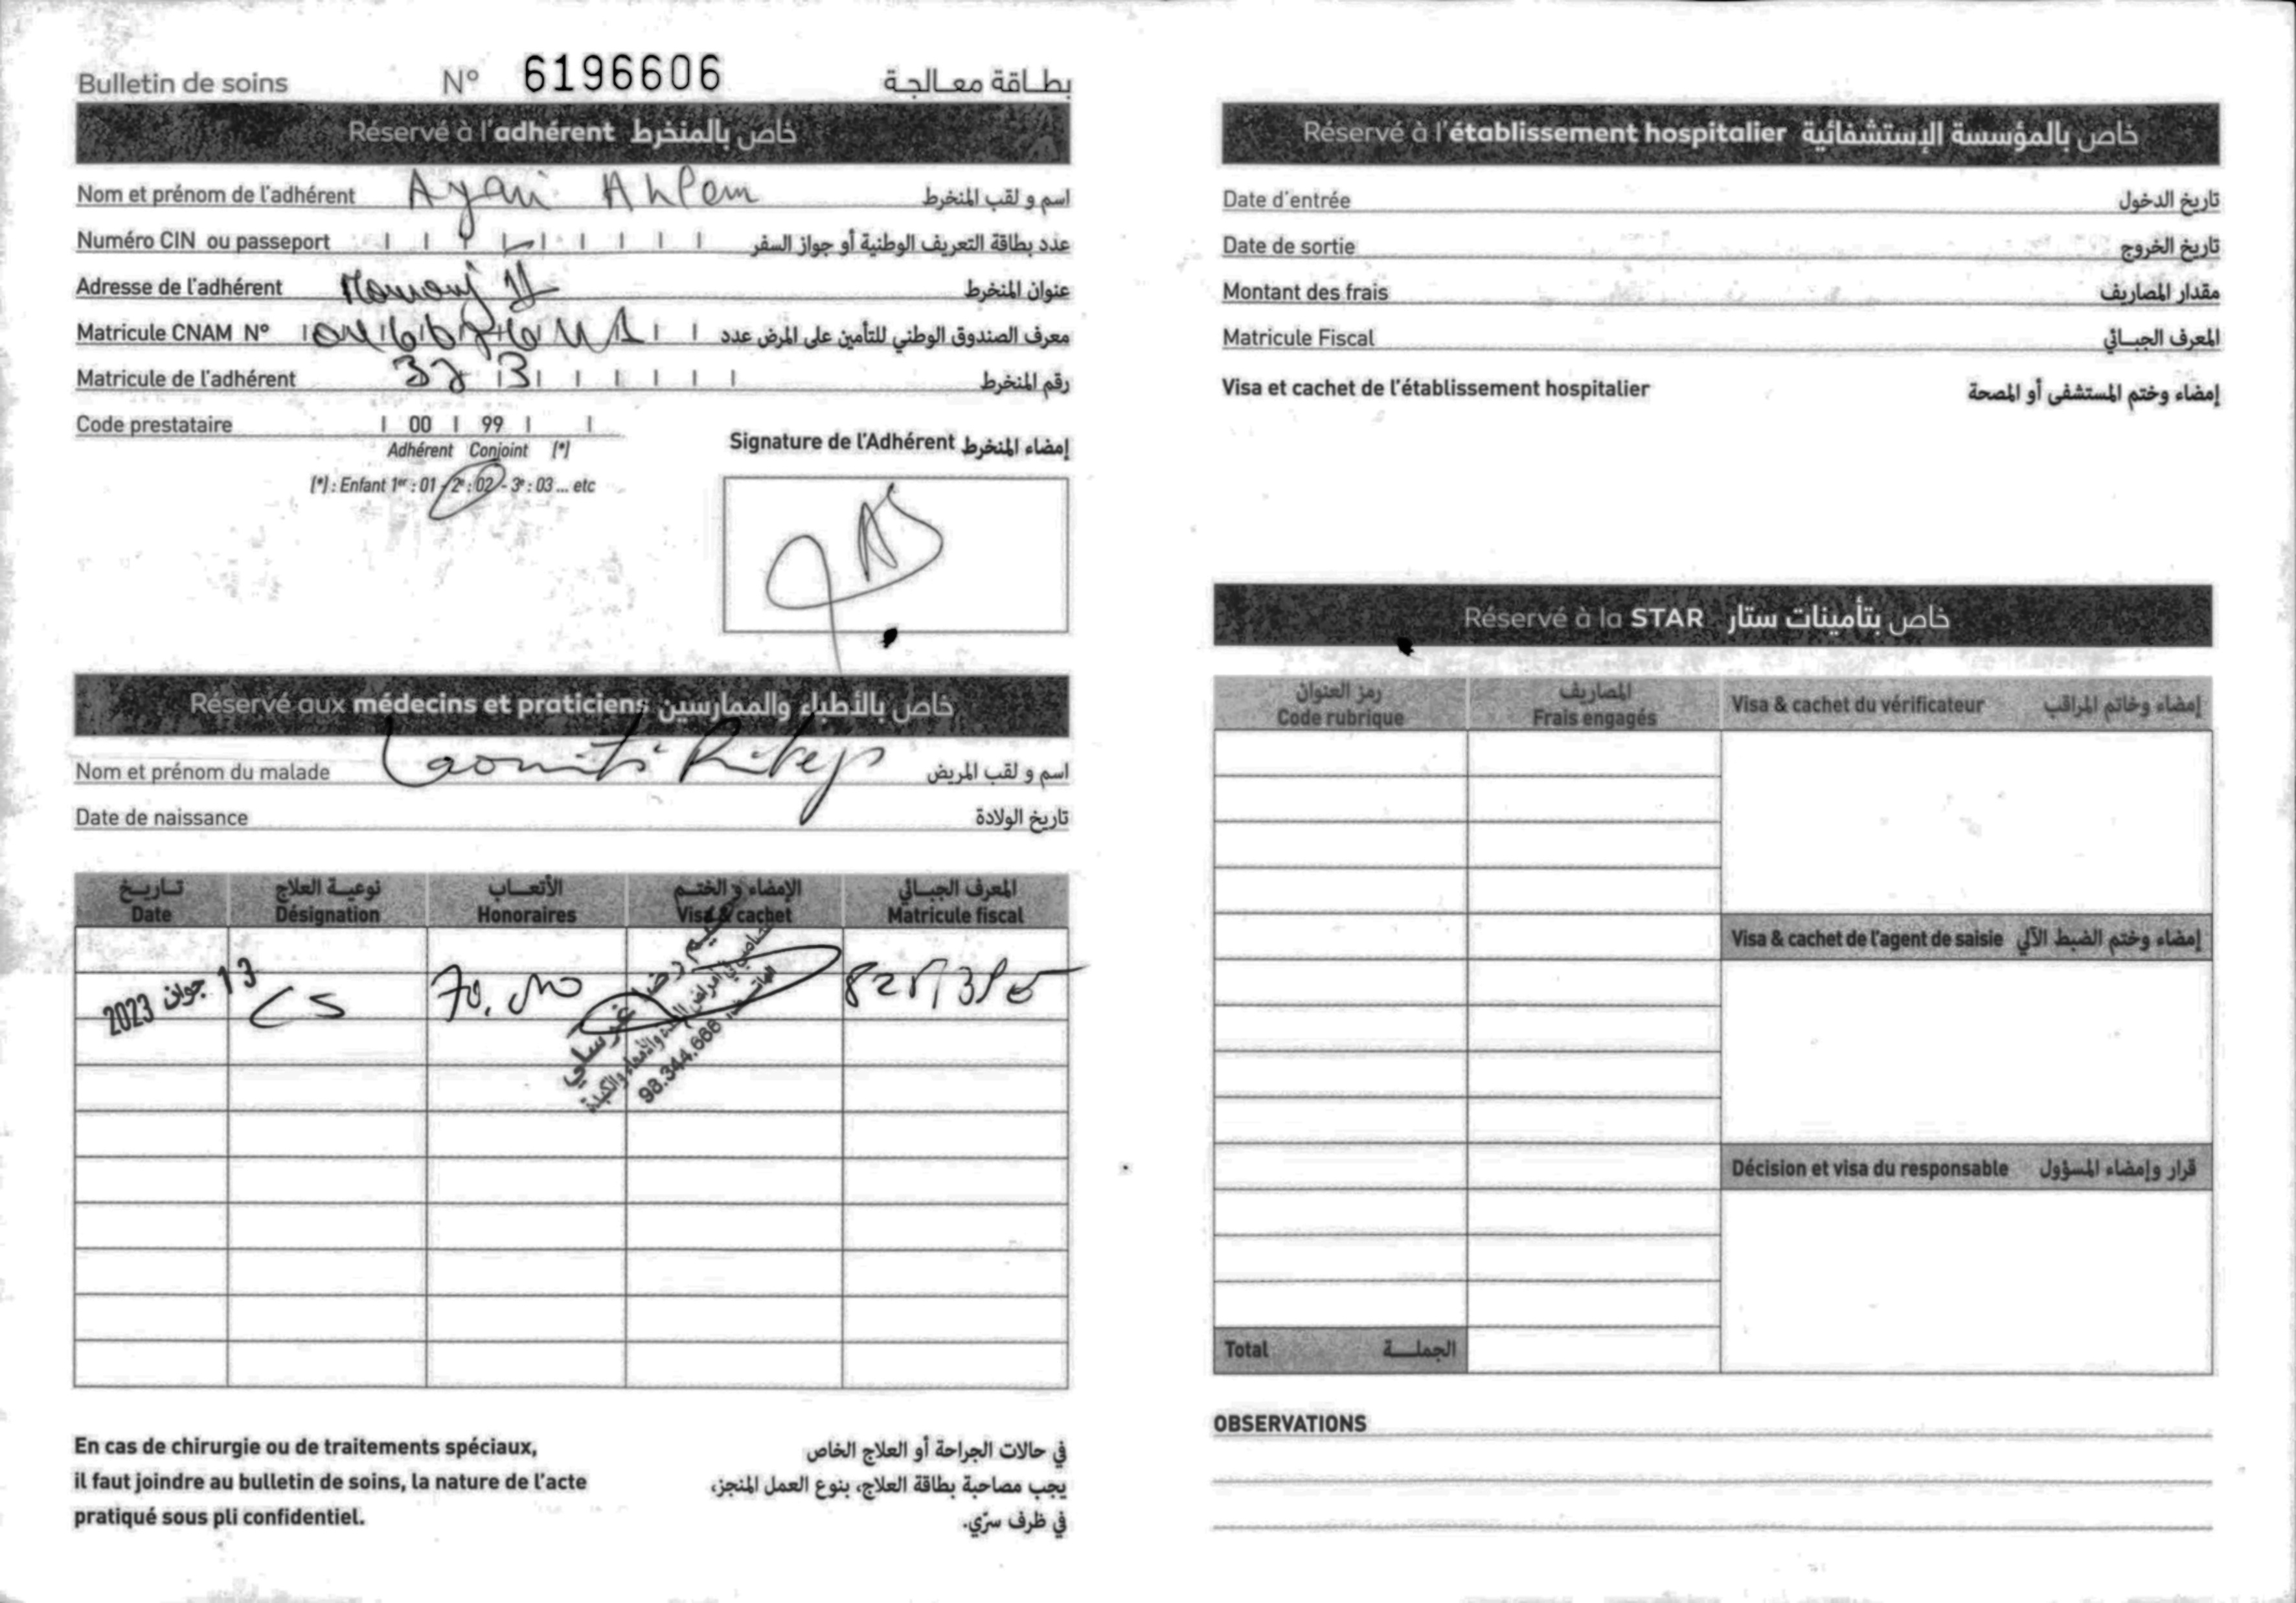 Bulletin de soins N° 6196606 بطاقة معالجة
Réservé à l'adhérent خاص بالمنخرط
Nom et prénom de l'adhérent Ayari Ahlem اسم و لقب المنخرط
Numéro CIN ou passeport عدد بطاقة التعريف الوطنية أو جواز السفر
Adresse de l'adhérent عنوان المنخرط
Matricule CNAM N° معرف الصندوق الوطني للتأمين على المرض عدد
Matricule de l'adhérent رقم المنخرط
Code prestataire 00 99
Adhérent Conjoint (*)
(*) : Enfant 1er : 01 - 2e : 02 - 3e : 03 ... etc
Signature de l'Adhérent إمضاء المنخرط
Réservé aux médecins et praticiens خاص بالأطباء والممارسين
Nom et prénom du malade اسم و لقب المريض
Date de naissance تاريخ الولادة
تاريخ نوعية العلاج الأتعاب الإمضاء و الختم المعرف الجبائي
Date Désignation Honoraires Visa & cachet Matricule fiscal
13 جوان 2023 CS
غرسلي
98.344.666
En cas de chirurgie ou de traitements spéciaux,
il faut joindre au bulletin de soins, la nature de l'acte
pratiqué sous pli confidentiel.
في حالات الجراحة أو العلاج الخاص
يجب مصاحبة بطاقة العلاج، بنوع العمل المنجز،
في ظرف سرّي.
Réservé à l'établissement hospitalier خاص بالمؤسسة الإستشفائية
Date d'entrée تاريخ الدخول
Date de sortie تاريخ الخروج
Montant des frais مقدار المصاريف
Matricule Fiscal المعرف الجبائي
Visa et cachet de l'établissement hospitalier إمضاء وختم المستشفى أو المصحة
Réservé à la STAR خاص بتأمينات ستار
رمز العنوان المصاريف
Code rubrique Frais engagés
Visa & cachet du vérificateur إمضاء وخاتم المراقب
Visa & cachet de l'agent de saisie إمضاء وختم الضبط الآلي
Décision et visa du responsable قرار وإمضاء المسؤول
Total الجملة
OBSERVATIONS